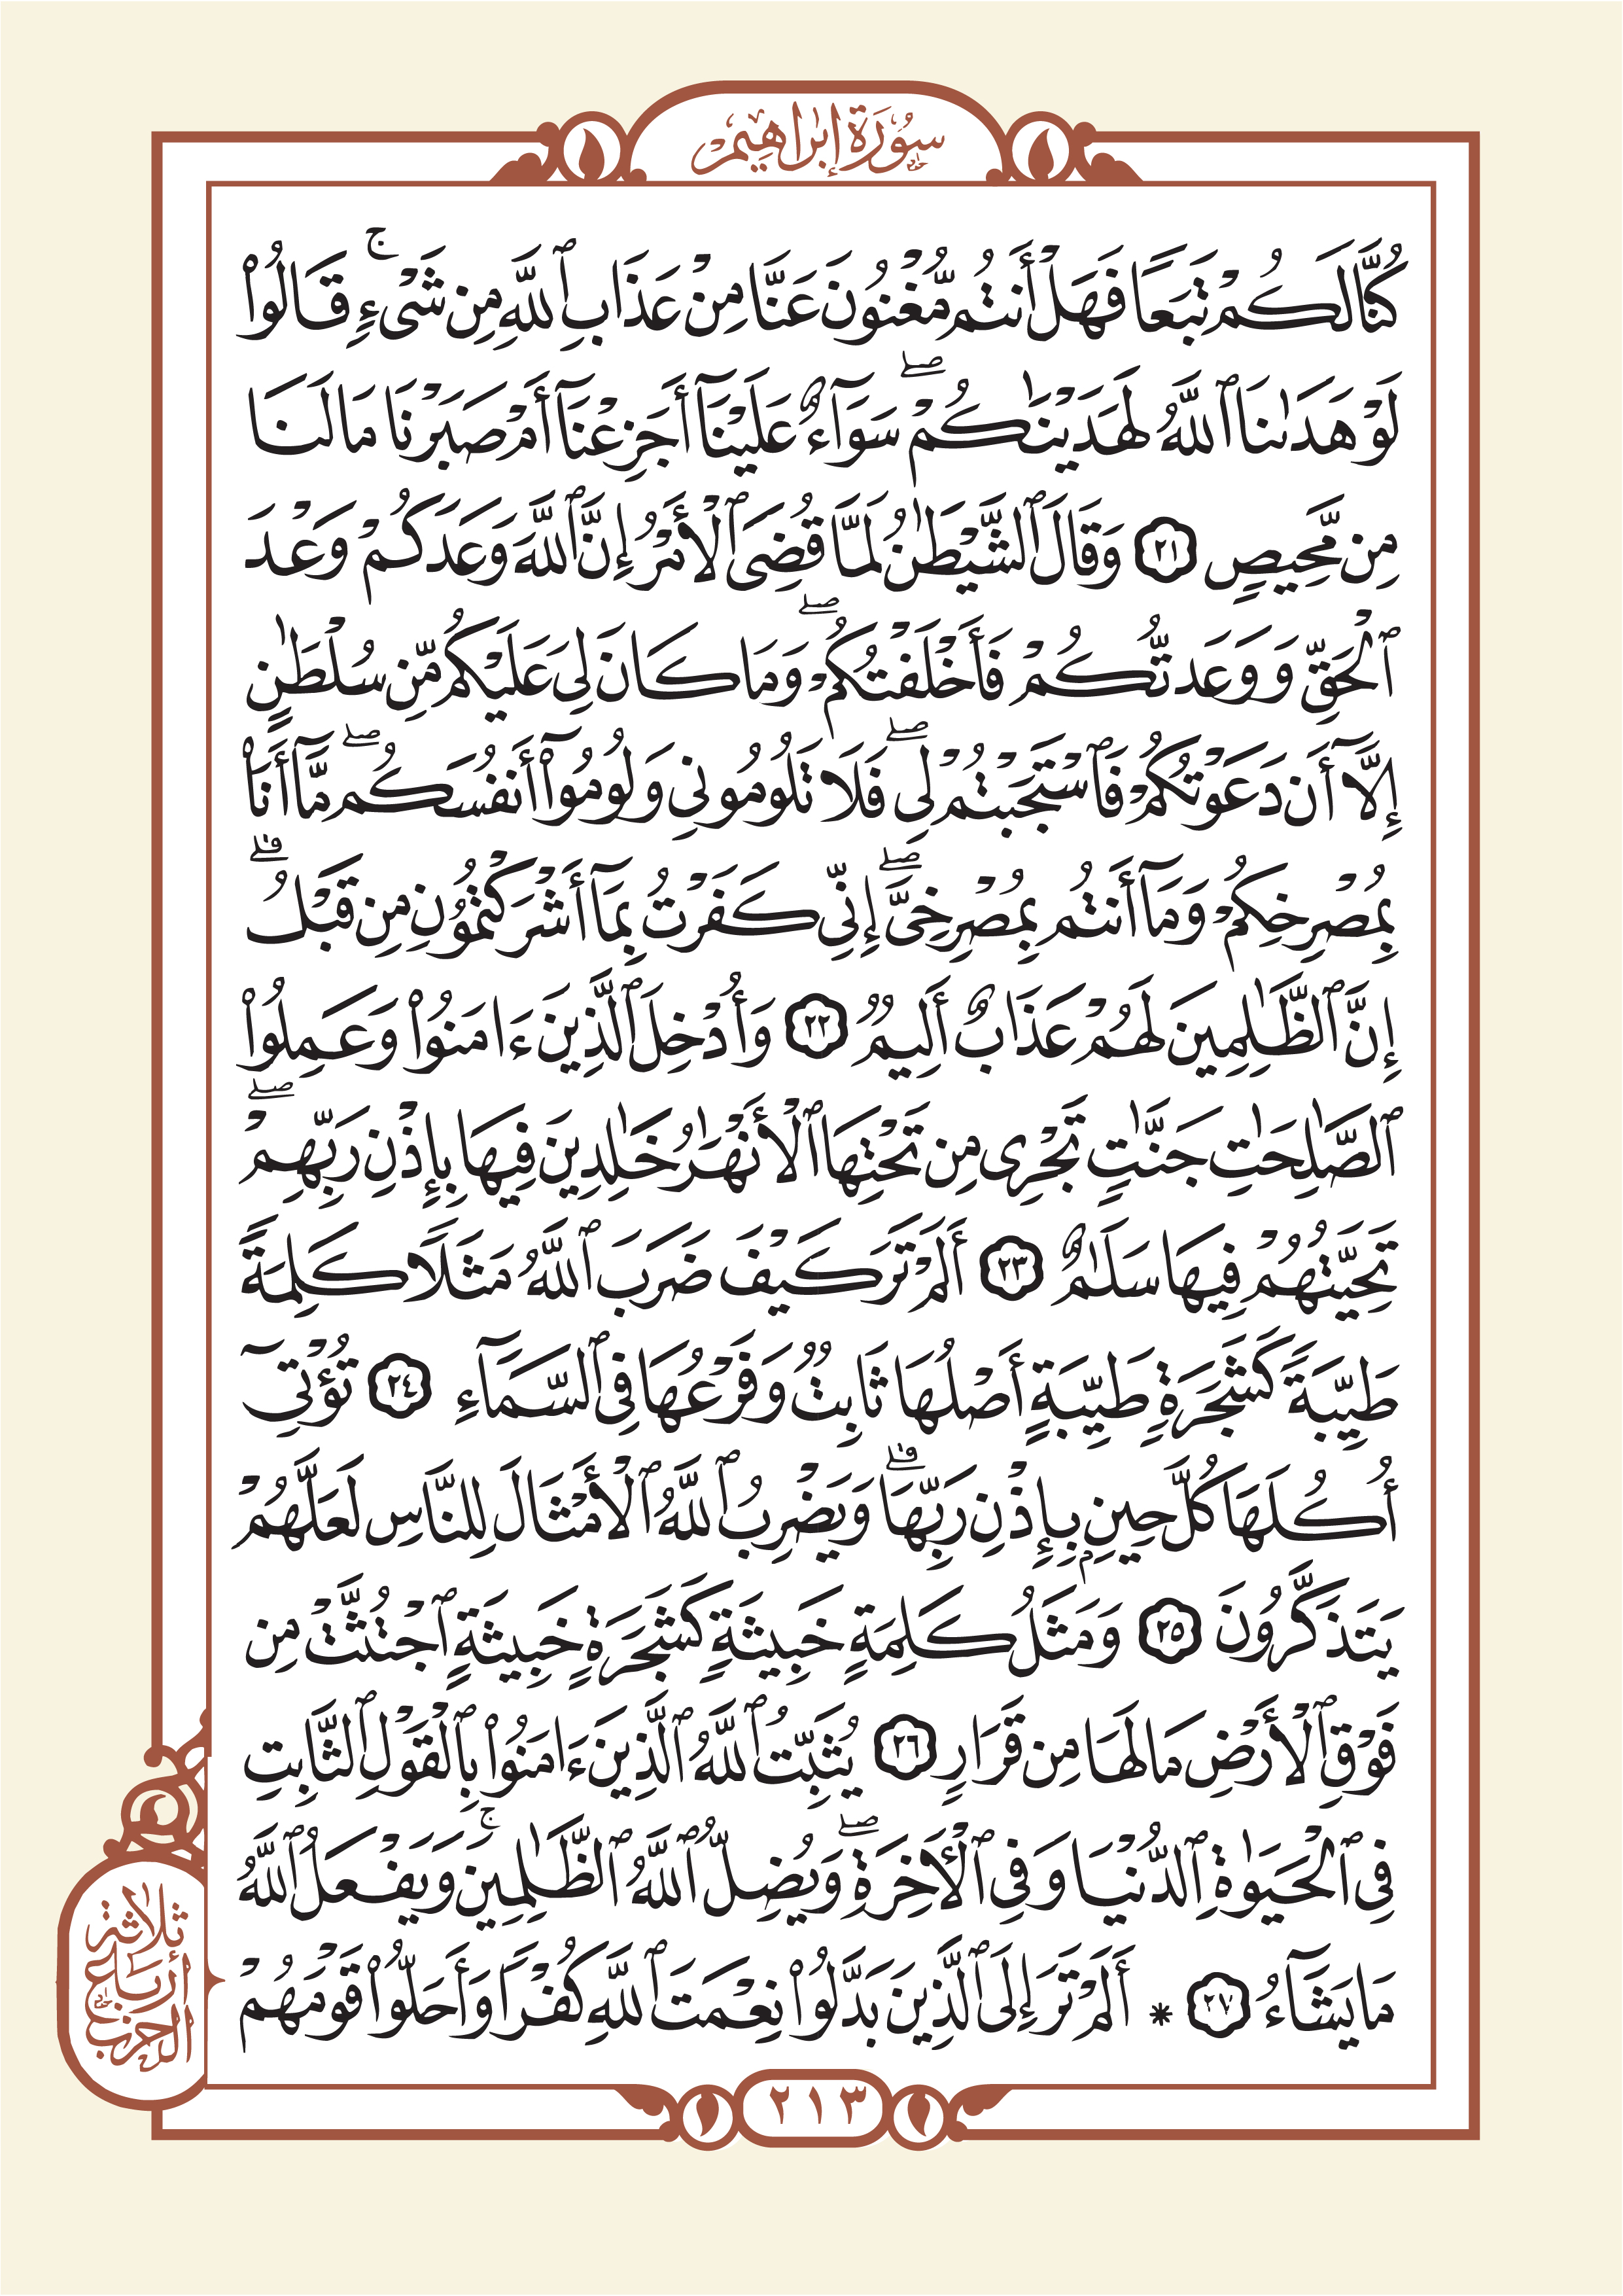 سُورَةُ إِبْرَاهِيمَ
كُنَّا لَكُمْ تَبَعًا فَهَلْ أَنتُم مُّغْنُونَ عَنَّا مِنْ عَذَابِ ٱللَّهِ مِن شَىْءٍ ۚ قَالُوا۟
لَوْ هَدَىٰنَا ٱللَّهُ لَهَدَيْنَـٰكُمْ ۖ سَوَآءٌ عَلَيْنَآ أَجَزِعْنَآ أَمْ صَبَرْنَا مَا لَنَا
مِن مَّحِيصٍ ٢١ وَقَالَ ٱلشَّيْطَـٰنُ لَمَّا قُضِىَ ٱلْأَمْرُ إِنَّ ٱللَّهَ وَعَدَكُمْ وَعْدَ
ٱلْحَقِّ وَوَعَدتُّكُمْ فَأَخْلَفْتُكُمْ ۖ وَمَا كَانَ لِىَ عَلَيْكُم مِّن سُلْطَـٰنٍ
إِلَّآ أَن دَعَوْتُكُمْ فَٱسْتَجَبْتُمْ لِى ۖ فَلَا تَلُومُونِى وَلُومُوٓا۟ أَنفُسَكُم ۖ مَّآ أَنَا۠
بِمُصْرِخِكُمْ وَمَآ أَنتُم بِمُصْرِخِىَّ ۖ إِنِّى كَفَرْتُ بِمَآ أَشْرَكْتُمُونِ مِن قَبْلُ ۗ
إِنَّ ٱلظَّـٰلِمِينَ لَهُمْ عَذَابٌ أَلِيمٌ ٢٢ وَأُدْخِلَ ٱلَّذِينَ ءَامَنُوا۟ وَعَمِلُوا۟
ٱلصَّـٰلِحَـٰتِ جَنَّـٰتٍ تَجْرِى مِن تَحْتِهَا ٱلْأَنْهَـٰرُ خَـٰلِدِينَ فِيهَا بِإِذْنِ رَبِّهِمْ ۖ
تَحِيَّتُهُمْ فِيهَا سَلَـٰمٌ ٢٣ أَلَمْ تَرَ كَيْفَ ضَرَبَ ٱللَّهُ مَثَلًا كَلِمَةً
طَيِّبَةً كَشَجَرَةٍ طَيِّبَةٍ أَصْلُهَا ثَابِتٌ وَفَرْعُهَا فِى ٱلسَّمَآءِ ٢٤ تُؤْتِىٓ
أُكُلَهَا كُلَّ حِينٍۭ بِإِذْنِ رَبِّهَا ۗ وَيَضْرِبُ ٱللَّهُ ٱلْأَمْثَالَ لِلنَّاسِ لَعَلَّهُمْ
يَتَذَكَّرُونَ ٢٥ وَمَثَلُ كَلِمَةٍ خَبِيثَةٍ كَشَجَرَةٍ خَبِيثَةٍ ٱجْتُثَّتْ مِن
فَوْقِ ٱلْأَرْضِ مَا لَهَا مِن قَرَارٍ ٢٦ يُثَبِّتُ ٱللَّهُ ٱلَّذِينَ ءَامَنُوا۟ بِٱلْقَوْلِ ٱلثَّابِتِ
فِى ٱلْحَيَوٰةِ ٱلدُّنْيَا وَفِى ٱلْأَخِرَةِ ۖ وَيُضِلُّ ٱللَّهُ ٱلظَّـٰلِمِينَ ۚ وَيَفْعَلُ ٱللَّهُ
مَا يَشَآءُ ٢٧ * أَلَمْ تَرَ إِلَى ٱلَّذِينَ بَدَّلُوا۟ نِعْمَتَ ٱللَّهِ كُفْرًا وَأَحَلُّوا۟ قَوْمَهُمْ
ثلاثة
أرباع
الحزب
٢١٣